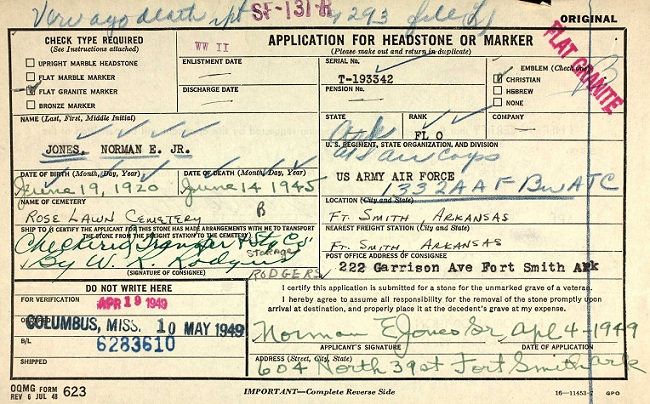 SF-131-R
293
ORIGINAL
CHECK TYPE REQUIRED
(See Instructions attached)
UPRIGHT MARBLE HEADSTONE
FLAT MARBLE MARKER
FLAT GRANITE MARKER
BRONZE MARKER
WW II
ENLISTMENT DATE
DISCHARGE DATE
APPLICATION FOR HEADSTONE OR MARKER
(Please make out and return in duplicate)
SERIAL No.
T-193342
PENSION No.
EMBLEM (Check one)
CHRISTIAN
HEBREW
NONE
FLAT GRANITE
B
NAME (Last, First, Middle Initial)
JONES, NORMAN E. JR.
STATE
Ark
RANK
FL O
COMPANY
DATE OF BIRTH (Month, Day, Year)
June 19, 1920
DATE OF DEATH (Month, Day, Year)
June 14 1945
U. S. REGIMENT, STATE ORGANIZATION, AND DIVISION
air corps
US ARMY AIR FORCE
1332 AAF Bu ATC
NAME OF CEMETERY
ROSE LAWN CEMETERY B
LOCATION (City and State)
FT. SMITH, ARKANSAS
SHIP TO (I CERTIFY THE APPLICANT FOR THIS STONE HAS MADE ARRANGEMENTS WITH ME TO TRANSPORT THE STONE FROM THE FREIGHT STATION TO THE CEMETERY)
Transfer & Stg Co
By W. R. Rodgers
STORAGE
RODGERS
(SIGNATURE OF CONSIGNEE)
NEAREST FREIGHT STATION (City and State)
FT. SMITH, ARKANSAS
POST OFFICE ADDRESS OF CONSIGNEE
222 Garrison Ave Fort Smith Ark
DO NOT WRITE HERE
FOR VERIFICATION
APR 19 1949
COLUMBUS, MISS. 10 MAY 1949
B/L
6283610
SHIPPED
I certify this application is submitted for a stone for the unmarked grave of a veteran.
I hereby agree to assume all responsibility for the removal of the stone promptly upon arrival at destination, and properly place it at the decedent's grave at my expense.
Norman E Jones Sr, Apl 4-1949
APPLICANT'S SIGNATURE
DATE OF APPLICATION
ADDRESS (Street, City, State)
604 North 39st Fort Smith ark
OQMG FORM
REV 6 JUL 48 623
IMPORTANT—Complete Reverse Side
16—11453-7 GPO